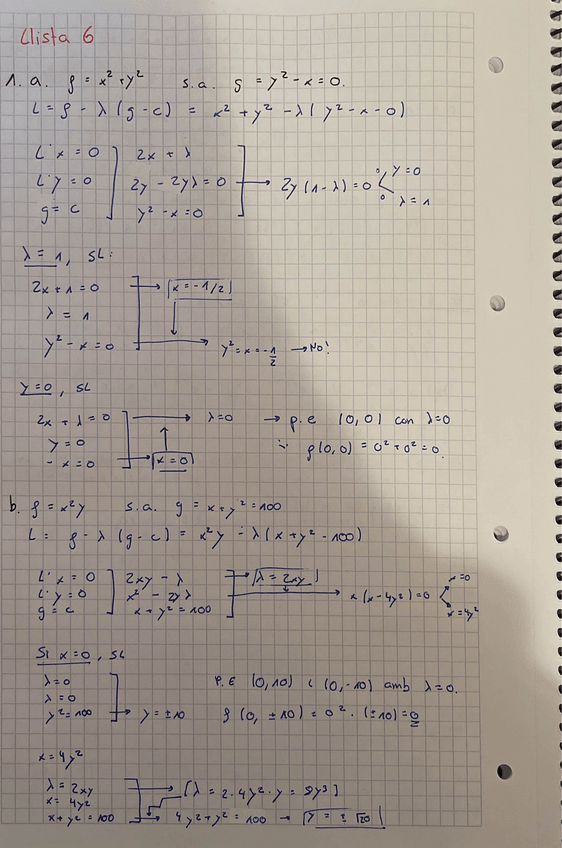 Llista 6
1. a. f = x² + y² s.a. g = y² - x = 0.
L = f - λ (g - c) = x² + y² - λ ( y² - x - 0)
L'x = 0 ] 2x + λ
L'y = 0 2y - 2yλ = 0 → 2y (1 - λ) = 0 < y = 0
g = c y² - x = 0 λ = 1
λ = 1, SL:
2x + 1 = 0 → [x = -1/2]
λ = 1
y² - x = 0 → y² = x = -1/2 → No!
y = 0, SL
2x + λ = 0 → λ = 0 → p.e (0,0) con λ = 0
y = 0 f(0,0) = 0² + 0² = 0.
- x = 0 [x = 0]
b. f = x²y s.a. g = x + y² = 100
L = f - λ (g - c) = x²y - λ (x + y² - 100)
L'x = 0 ] 2xy - λ → [λ = 2xy] x = 0
L'y = 0 x² - 2yλ → x (x - 4y²) = 0 <
g = c x + y² = 100 x = 4y²
Si x = 0, SL
λ = 0 P.E (0,10) i (0,-10) amb λ = 0.
λ = 0
y² = 100 → y = ±10 f (0, ±10) = 0² · (±10) = 0
x = 4y²
λ = 2xy → [λ = 2 · 4y² · y = 8y³]
x = 4y²
x + y² = 100 → 4y² + y² = 100 → [y = ± √20]